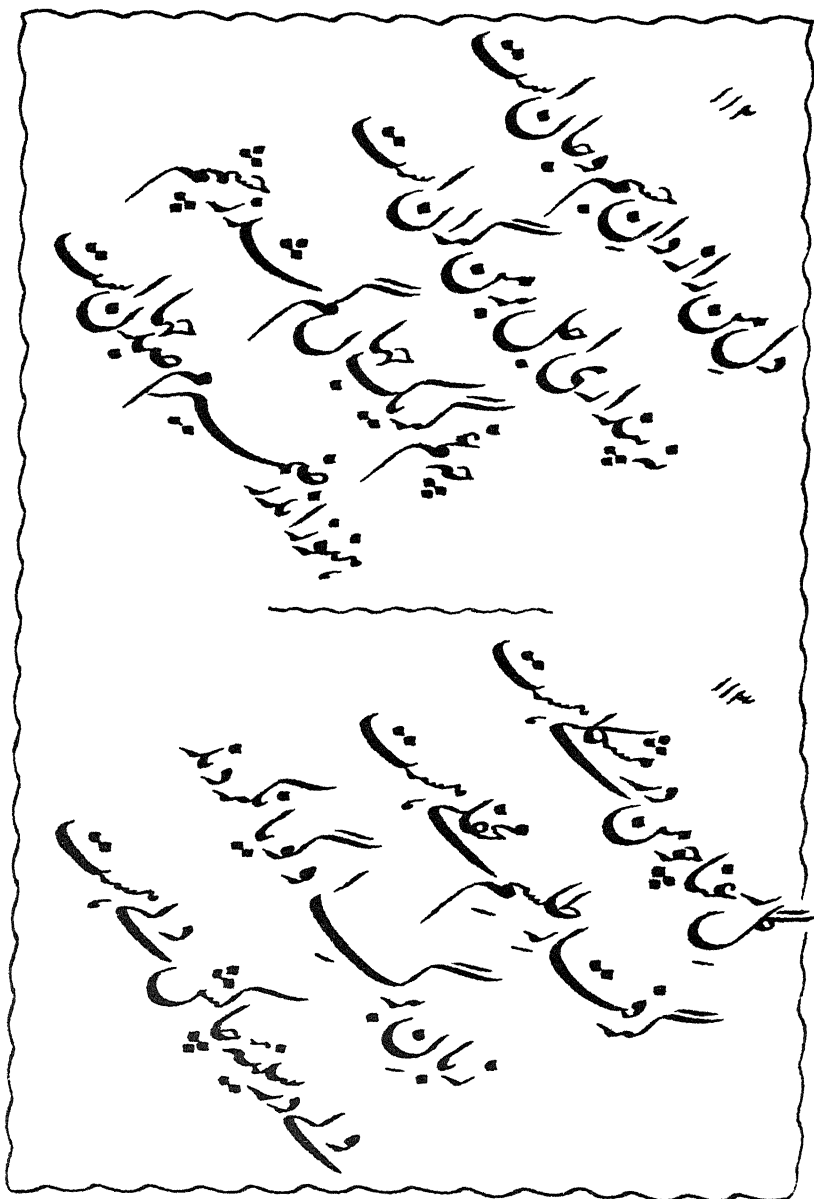 ۱۱۲
دلِ من رازدانِ جسم و جان است
نه پنداری اجل بر من گران است
چه غم گر یک جهان گم شد ز چشمم
هنوز اندر ضمیرم صد جهان است
۱۱۳
گلِ رعنا چو من در مشکلے ہست
گرفتارِ طلسمِ محفلے ہست
زبانِ برگِ او گویا نکردند
ولے در سینۂ چاکش دلے ہست